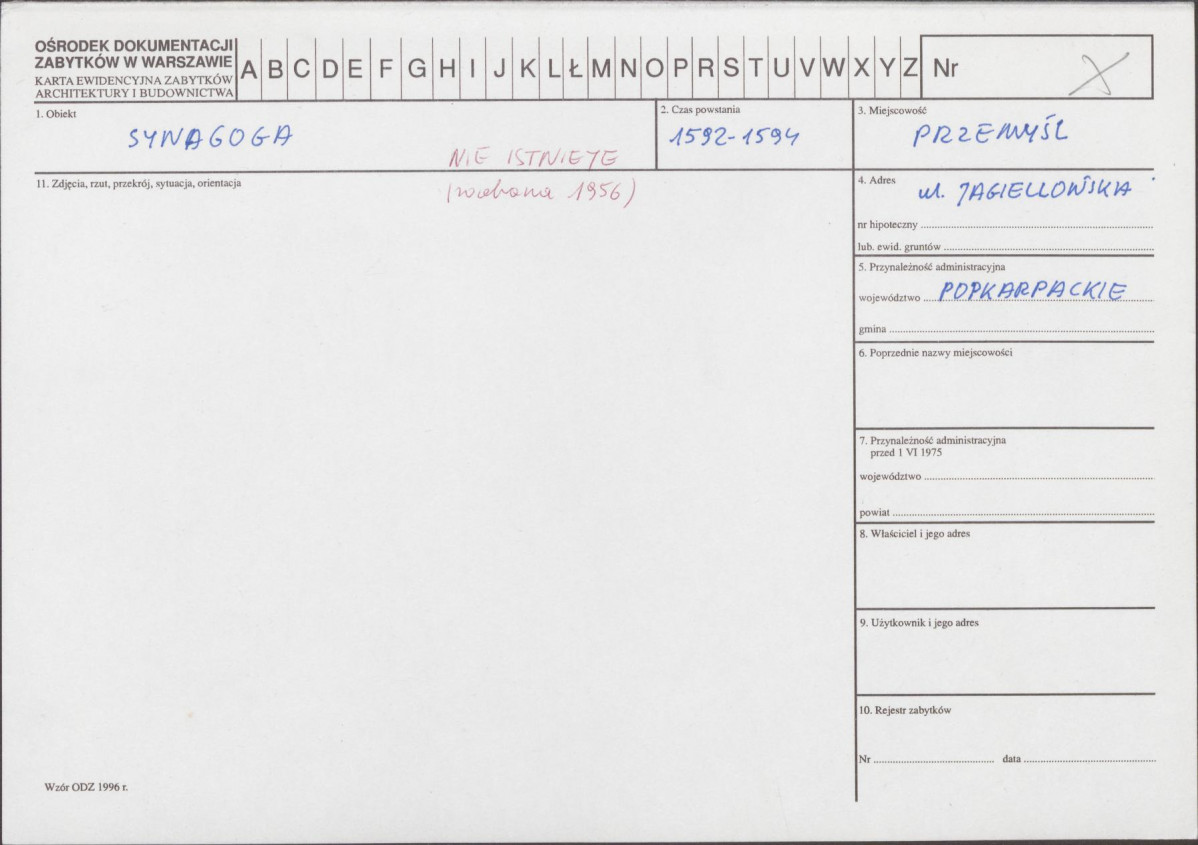 OŚRODEK DOKUMENTACJI
ZABYTKÓW W WARSZAWIE
KARTA EWIDENCYJNA ZABYTKÓW
ARCHITEKTURY I BUDOWNICTWA
A B C D E F G H I J K L Ł M N O P R S T U V W X Y Z
Nr
X
1. Obiekt
SYNAGOGA
NIE ISTNIEJE
(rozebrana 1956)
2. Czas powstania
1592-1594
3. Miejscowość
PRZEMYŚL
11. Zdjęcia, rzut, przekrój, sytuacja, orientacja
4. Adres
ul. JAGIELLOŃSKA
nr hipoteczny
lub. ewid. gruntów
5. Przynależność administracyjna
województwo PODKARPACKIE
gmina
6. Poprzednie nazwy miejscowości
7. Przynależność administracyjna
przed 1 VI 1975
województwo
powiat
8. Właściciel i jego adres
9. Użytkownik i jego adres
10. Rejestr zabytków
Nr data
Wzór ODZ 1996 r.